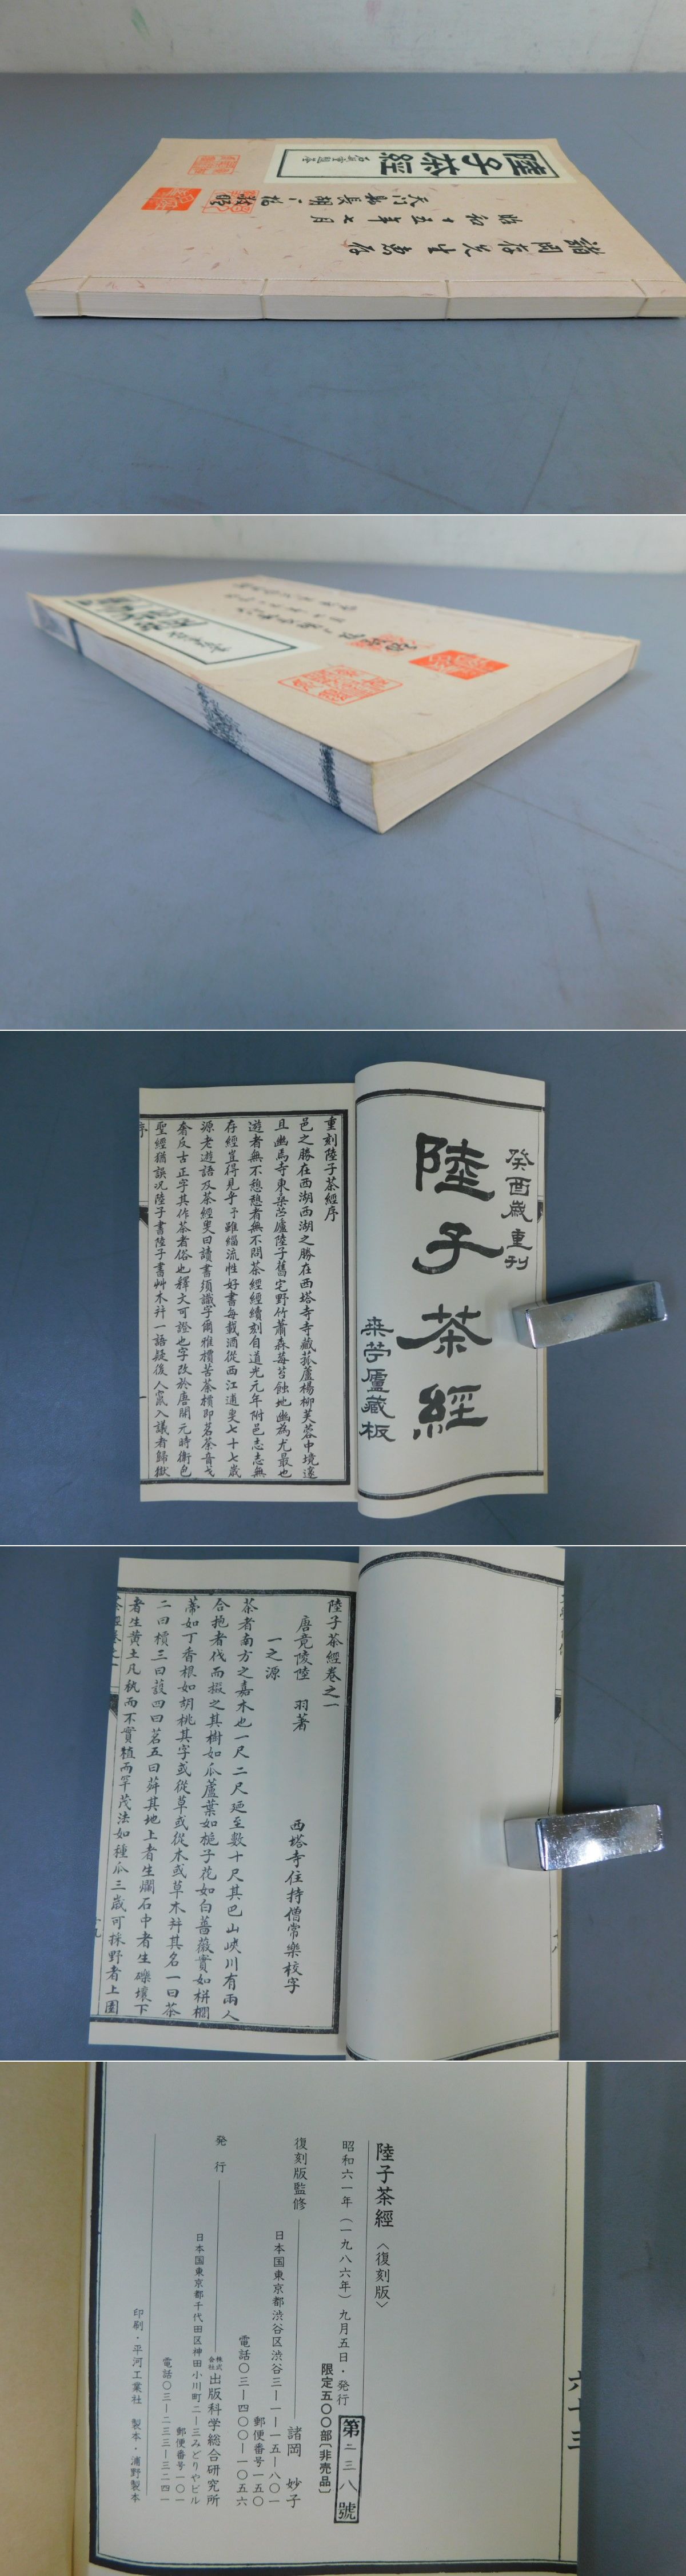 陸子茶經
諸岡存先生惠存
昭和十五年七月
天門縣長胡一
癸酉歲重刊
陸子茶經
桑苧廬藏板
重刻陸子茶經序
邑之勝在西湖西湖之勝在西塔寺寺藏菰蘆楊柳芙蓉中境邃
且幽焉寺東桑苧廬陸子舊宅野竹蕭森莓苔蝕地幽為尤最也
遊者無不憩憩者無不問茶經經續刻自道光元年附邑志志無
存經豈得見乎予雖緇流性好書每載酒從西江逋叟七十七歲
源老遊語及茶經叟曰讀書須識字爾雅檟苦荼檟即茗荼音戈
奢反古正字其作茶者俗也釋文可證也字改於唐開元時衛包
聖經猶誤況陸子書陸子書艸木幷一語疑後人竄入議者歸獄
序
一
陸子茶經卷之一
唐竟陵陸 羽著 西塔寺住持僧常樂校字
一之源
茶者南方之嘉木也一尺二尺廼至數十尺其巴山峽川有兩人
合抱者伐而掇之其樹如瓜蘆葉如梔子花如白薔薇實如栟櫚
蒂如丁香根如胡桃其字或從草或從木或草木幷其名一曰茶
二曰檟三曰蔎四曰茗五曰荈其地上者生爛石中者生礫壤下
者生黄土凡執而不實植而罕茂法如種瓜三歲可採野者上園
六十三
陸子茶經〈復刻版〉
昭和六一年（一九八六年）九月五日・発行
限定五〇〇部〔非売品〕
第二三八號
復刻版監修 諸岡 妙子
日本国東京都渋谷区渋谷三ー一ー一五ー八〇一
郵便番号一五〇
電話〇三ー四〇〇ー一〇五六
発行 株式会社 出版科学総合研究所
日本国東京都千代田区神田小川町二ー三みどりやビル
郵便番号一〇一
電話〇三ー二三三ー三二四一
印刷・平河工業社 製本・浦野製本